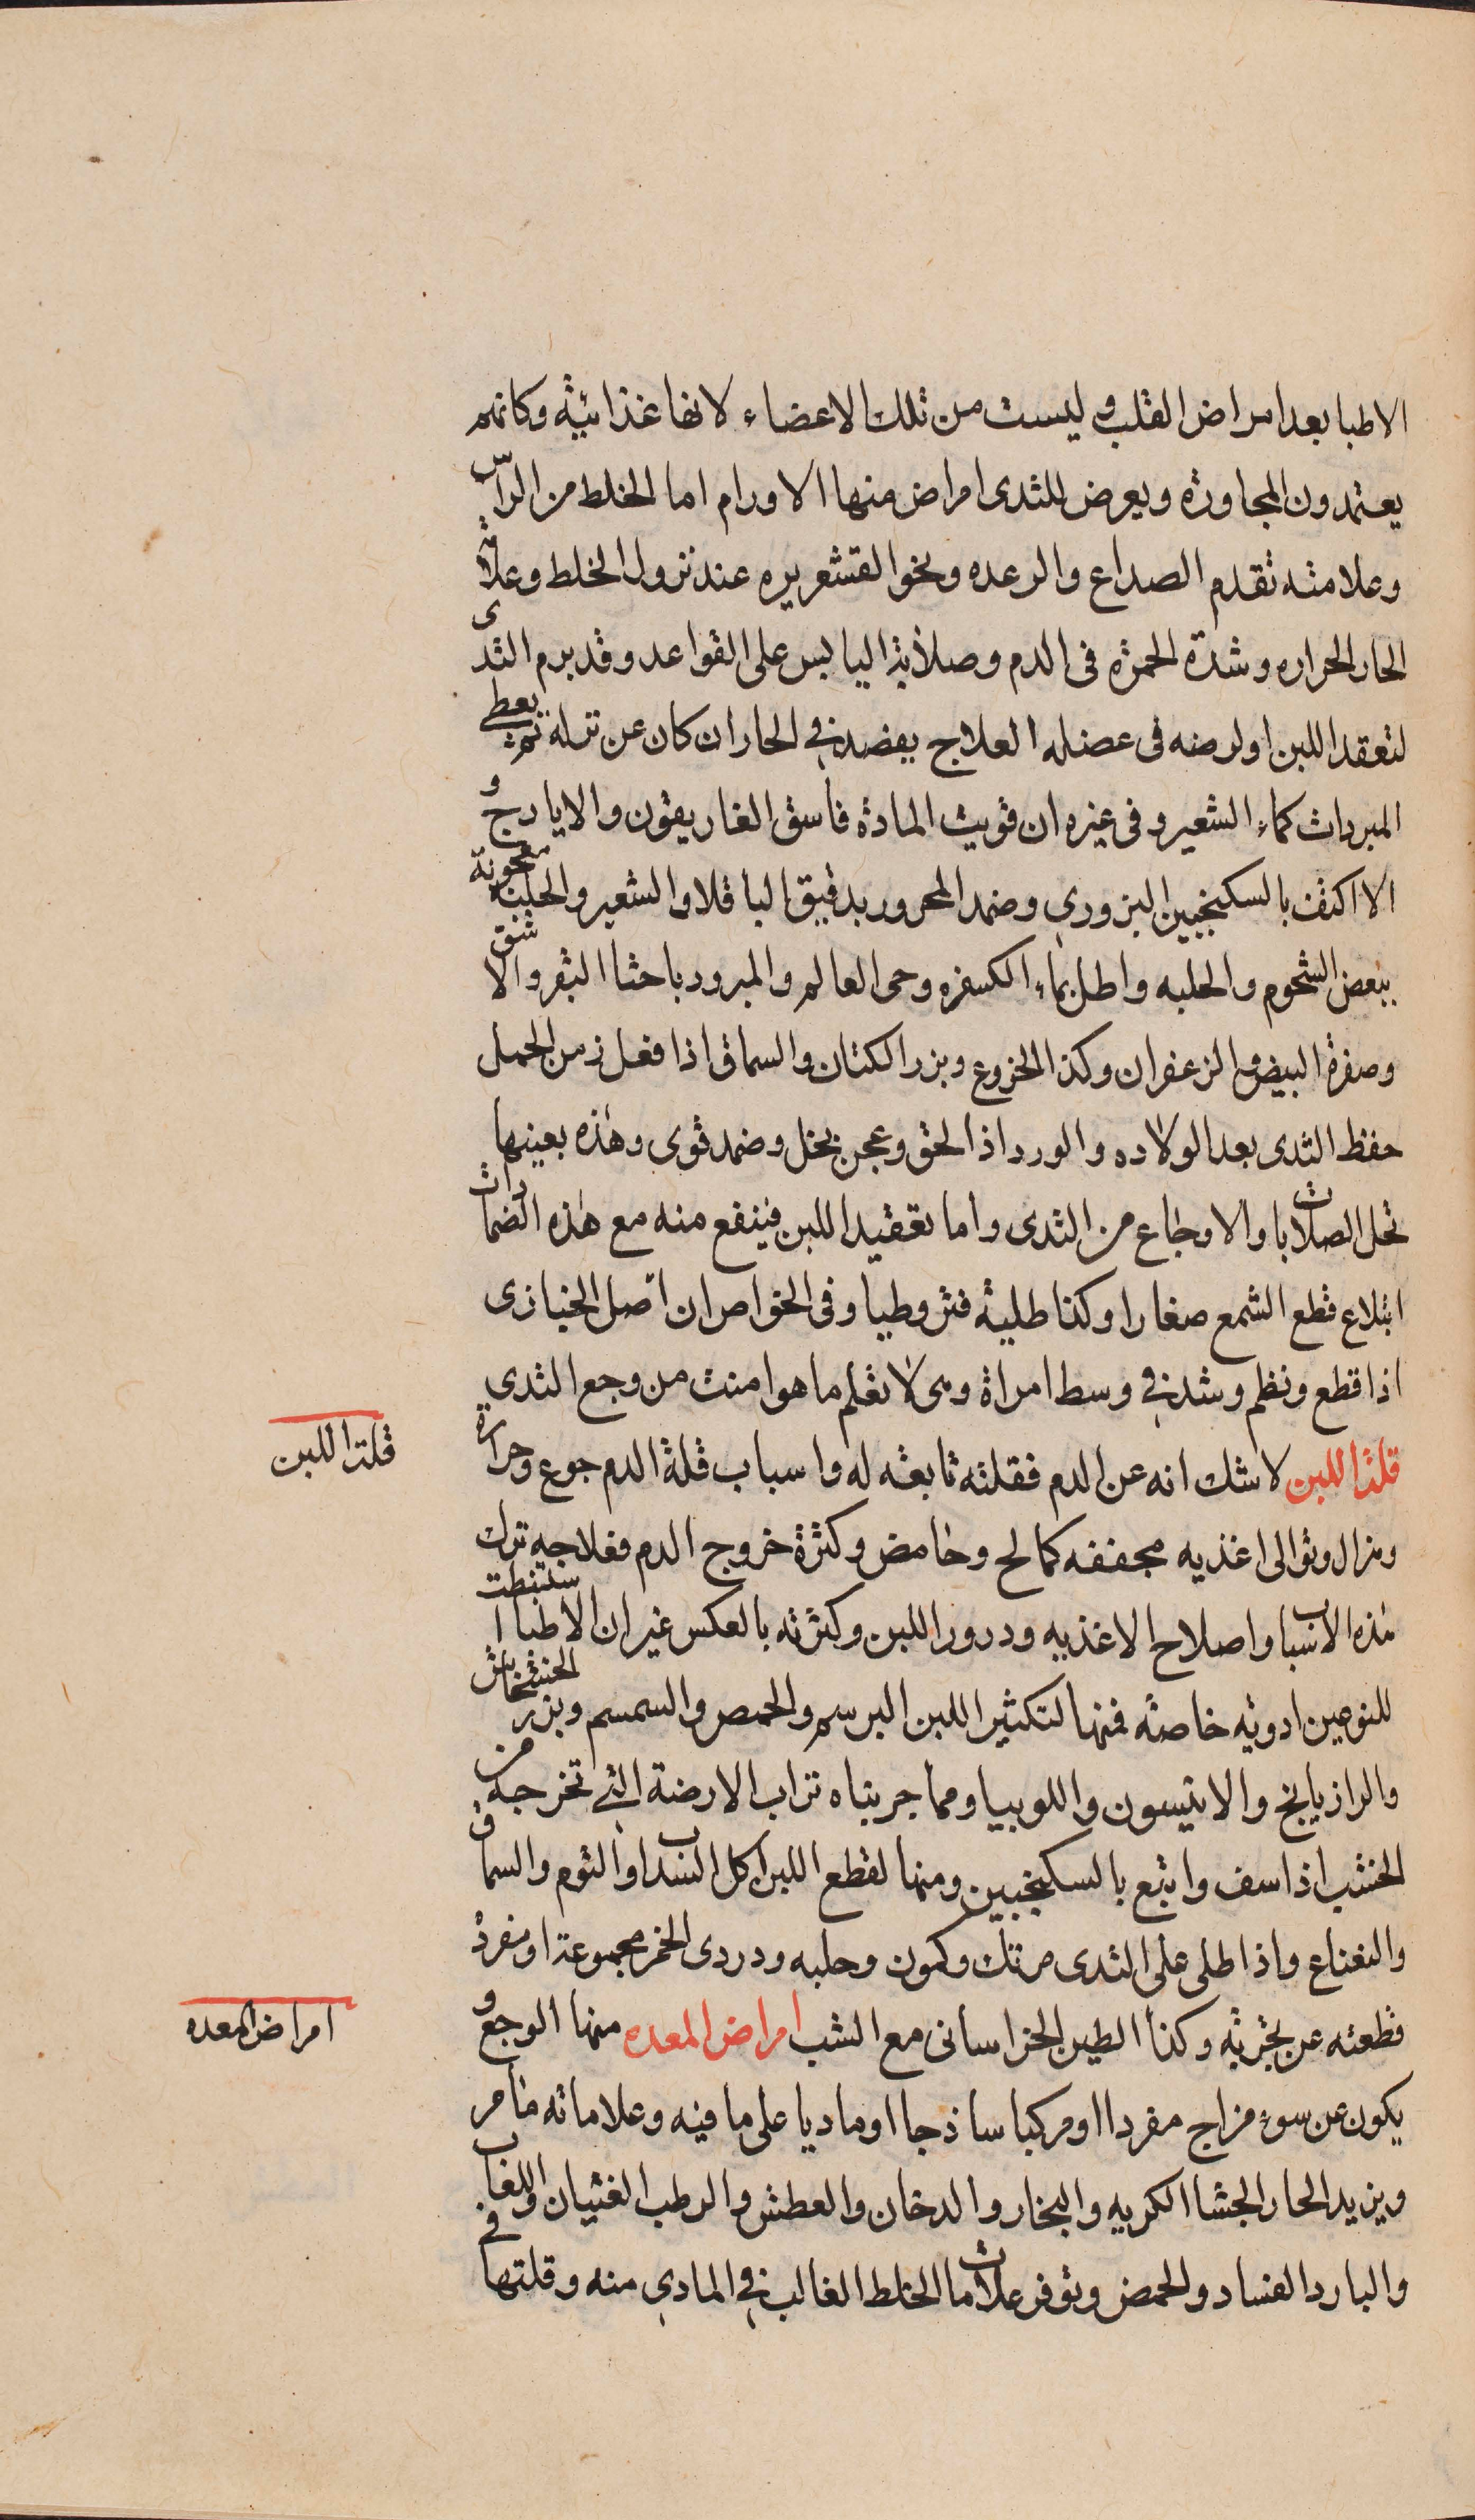 الاطبا بعد امراض القلب وليست من تلك الاعضاء لانها غذائية وكانهم
يعتمدون المجاورة ويعرض للثدى امراض منها الاورام اما الخلط من الراس
وعلامته تقدم الصداع والرعده ونحو القشعريره عند نزول الخلط وعلامة
الحار الحراره وشدة الحمرة فى الدم وصلابة اليابس على القواعد وقد يرم الثدى
لتعقد اللبن او لرضه فى عضله العلاج يفصد فى الحار ان كان عن نزله ثم يعطى
المبردات كماء الشعير وفى غيره ان قويت المادة فاسق الغاريقون والايارج و
الا اكتف بالسكنجبين البزورى وضمد المحرور بدقيق الباقلا والشعير والحلبة معجونة
ببعض الشحوم والحلبه واطل بماء الكسفره وحى العالم والمبرود باحثا البقر والاشق
وصفرة البيض والزعفران وكذا الخروع وبزر الكتان والسماق اذا فعل زمن الحمل
حفظ الثدى بعد الولاده والورد اذا لحق وعجن بخل وضمد قوى وهذه بعينها
تحل الصلابات والاوجاع من الثدى واما تعقيد اللبن فينفع منه مع هذه الضمادات
ابتلاع قطع الشمع صغارا وكذا طلية قثروطيا وفى الخواص ان اصل الخبازى
اذا قطع ونظم وشد فى وسط امراة وهى لا تعلم ما هو امنت من وجع الثدى
قلة اللبن لا شك انه عن الدم فقلته تابعته له واسباب قلة الدم جوع وحرارة
وهزال وتوالى اغذيه مجففه كمالح وحامض وكثرة خروج الدم فعلاجه ترك
هذه الاسباب واصلاح الاغذيه ودرور اللبن وكثرته بالعكس غير ان الاطبا استنبطت
للنوعين ادويه خاصة فمنها لتكثير اللبن البرسم والحمص والسمسم وبزر الخشخاش
والرازيانج والانيسون واللوبيا ومما جربناه تراب الارضة التى تخرجه من
الخشب اذا سف واتبع بالسكنجبين ومنها لقطع اللبن اكل السداب والثوم والسماق
والنعناع واذا طلى على الثدى مرتك وكمون وحلبه ودردى الخمر مجموعة او مفردة
قطعته عن تجربة وكذا الطين الخراسانى مع الشب امراض المعده منها الوجع و
يكون عن سوء مزاج مفردا او مركبا ساذجا او ماديا على ما فيه وعلاماته ما مر
ويزيد الحار الجشا الكريه والبخار والدخان والعطش والرطب الغثيان واللعاب
والبارد الفساد والحمض وتوفر علامات الخلط الغالب فى المادى منه وقلتها فى
قلة اللبن
امراض المعده